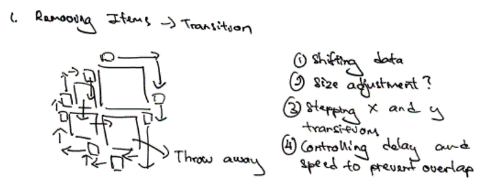 1. Removing Items → Transition
① Shifting data
② Size adjustment?
③ Stepping x and y
transitions
④ Controlling delay and
speed to prevent overlap
Throw away